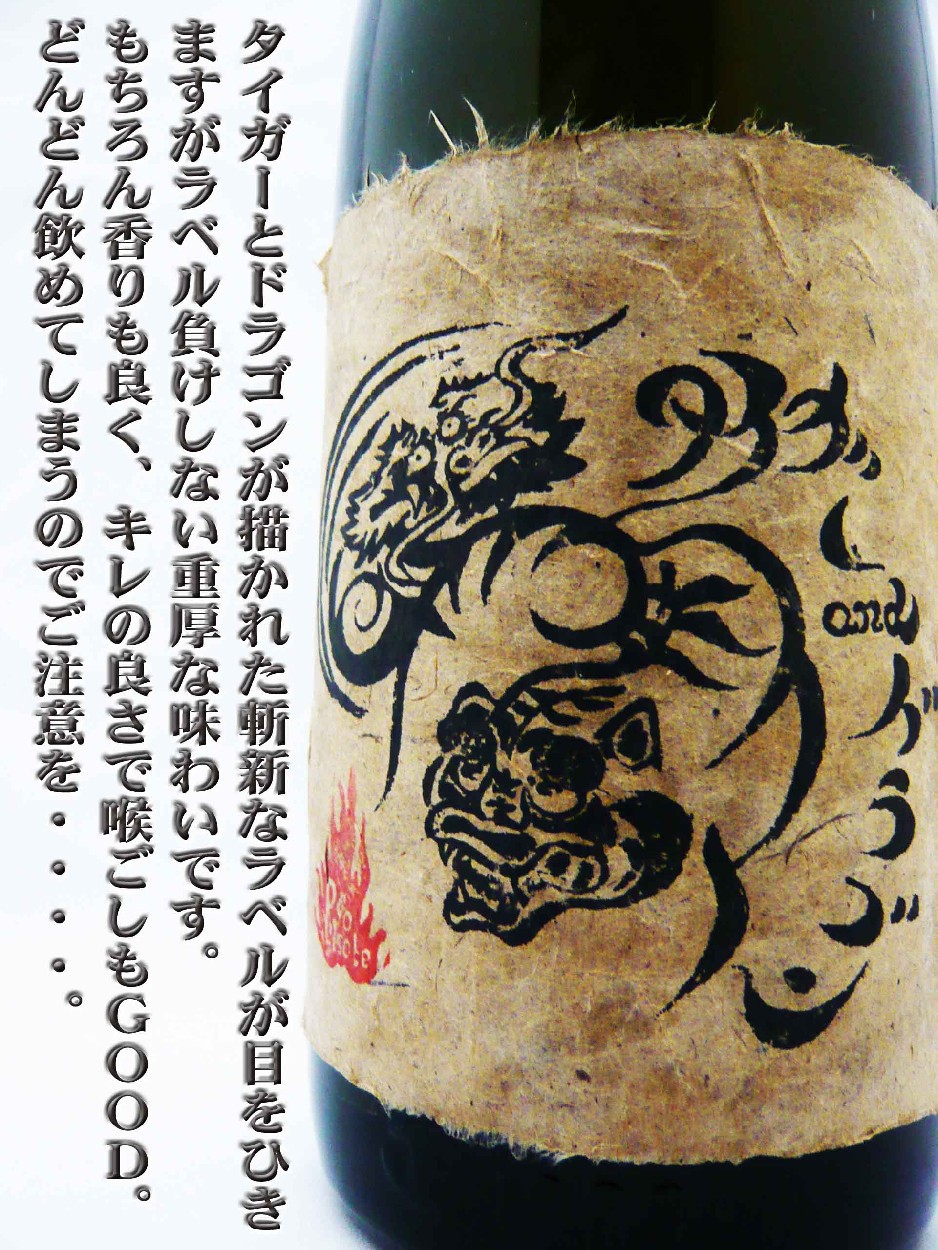 タイガーとドラゴンが描かれた斬新なラベルが目をひき
ますがラベル負けしない重厚な味わいです。
もちろん香りも良く、キレの良さで喉ごしもGOOD。
どんどん飲めてしまうのでご注意を・・・・。
タイガー
and
ドラゴン